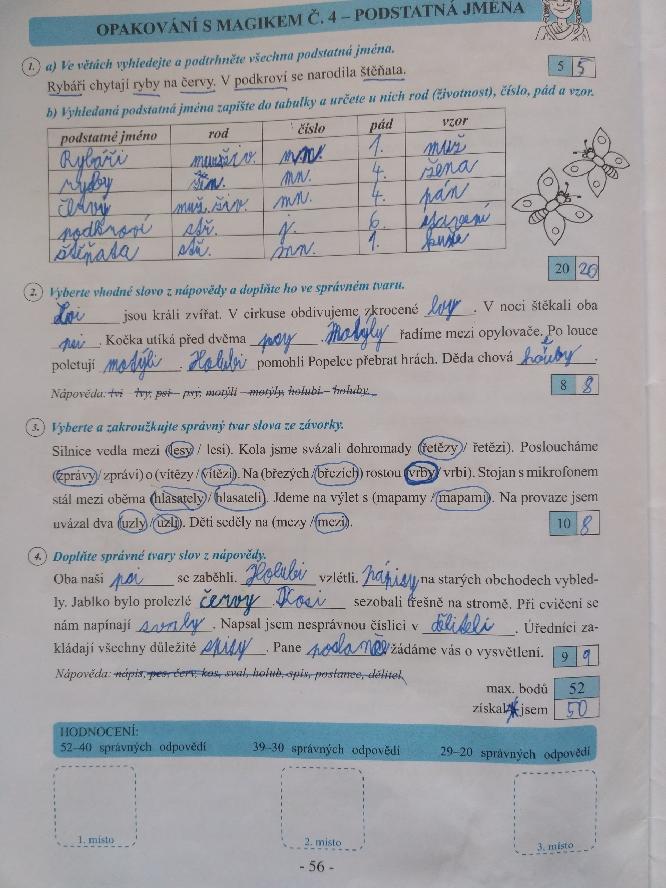 OPAKOVÁNÍ S MAGIKEM Č. 4 – PODSTATNÁ JMÉNA
1. a) Ve větách vyhledejte a podtrhněte všechna podstatná jména.
Rybáři chytají ryby na červy. V podkroví se narodila štěňata. 5 5
b) Vyhledaná podstatná jména zapište do tabulky a určete u nich rod (životnost), číslo, pád a vzor.
podstatné jméno rod číslo pád vzor
Rybáři muž.živ. mn. 1. muž
ryby žen. mn. 4. žena
červy muž.živ. mn. 4. pán
podkroví stř. j. 6. stavení
štěňata stř. mn. 1. kuře
20 20
2. Vyberte vhodné slovo z nápovědy a doplňte ho ve správném tvaru.
Lvi jsou králi zvířat. V cirkuse obdivujeme zkrocené lvy. V noci štěkali oba
psi. Kočka utíká před dvěma psy. Motýly řadíme mezi opylovače. Po louce
poletují motýli. Holubi pomohli Popelce přebrat hrách. Děda chová holuby.
Nápověda: lvi – lvy, psi – psy, motýli – motýly, holubi – holuby 8 8
3. Vyberte a zakroužkujte správný tvar slova ze závorky.
Silnice vedla mezi (lesy / lesi). Kola jsme svázali dohromady (řetězy / řetězi). Posloucháme
(zprávy / zprávi) o (vítězy / vítězi). Na (březých / březích) rostou (vrby / vrbi). Stojan s mikrofonem
stál mezi oběma (hlasately / hlasateli). Jdeme na výlet s (mapamy / mapami). Na provaze jsem
uvázal dva (uzly / uzli). Děti seděly na (mezy / mezi). 10 8
4. Doplňte správné tvary slov z nápovědy.
Oba naši psi se zaběhli. Holubi vzlétli. Nápisy na starých obchodech vybled-
ly. Jablko bylo prolezlé červy. Kosi sezobali třešně na stromě. Při cvičení se
nám napínají svaly. Napsal jsem nesprávnou číslici v děliteli. Úředníci za-
kládají všechny důležité spisy. Pane poslanče žádáme vás o vysvětlení. 9 9
Nápověda: nápis, pes, červ, kos, sval, holub, spis, poslanec, dělitel
max. bodů 52
získal jsem 50
HODNOCENÍ:
52–40 správných odpovědí 39–30 správných odpovědí 29–20 správných odpovědí
1. místo 2. místo 3. místo
- 56 -